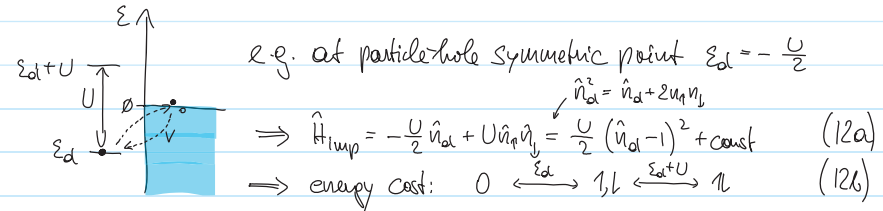 ε
e.g. at particle-hole symmetric point ε_d = - U/2
ε_d+U
U
0
n̂_d² = n̂_d + 2n_↑n_↓
V
⇒ Ĥ_imp = - U/2 n̂_d + U n̂_↑ n̂_↓ = U/2 (n̂_d - 1)² + const (12a)
ε_d
⇒ energy cost: 0 ⟷^{ε_d} ↑,↓ ⟷^{ε_d+U} ↑↓ (12b)